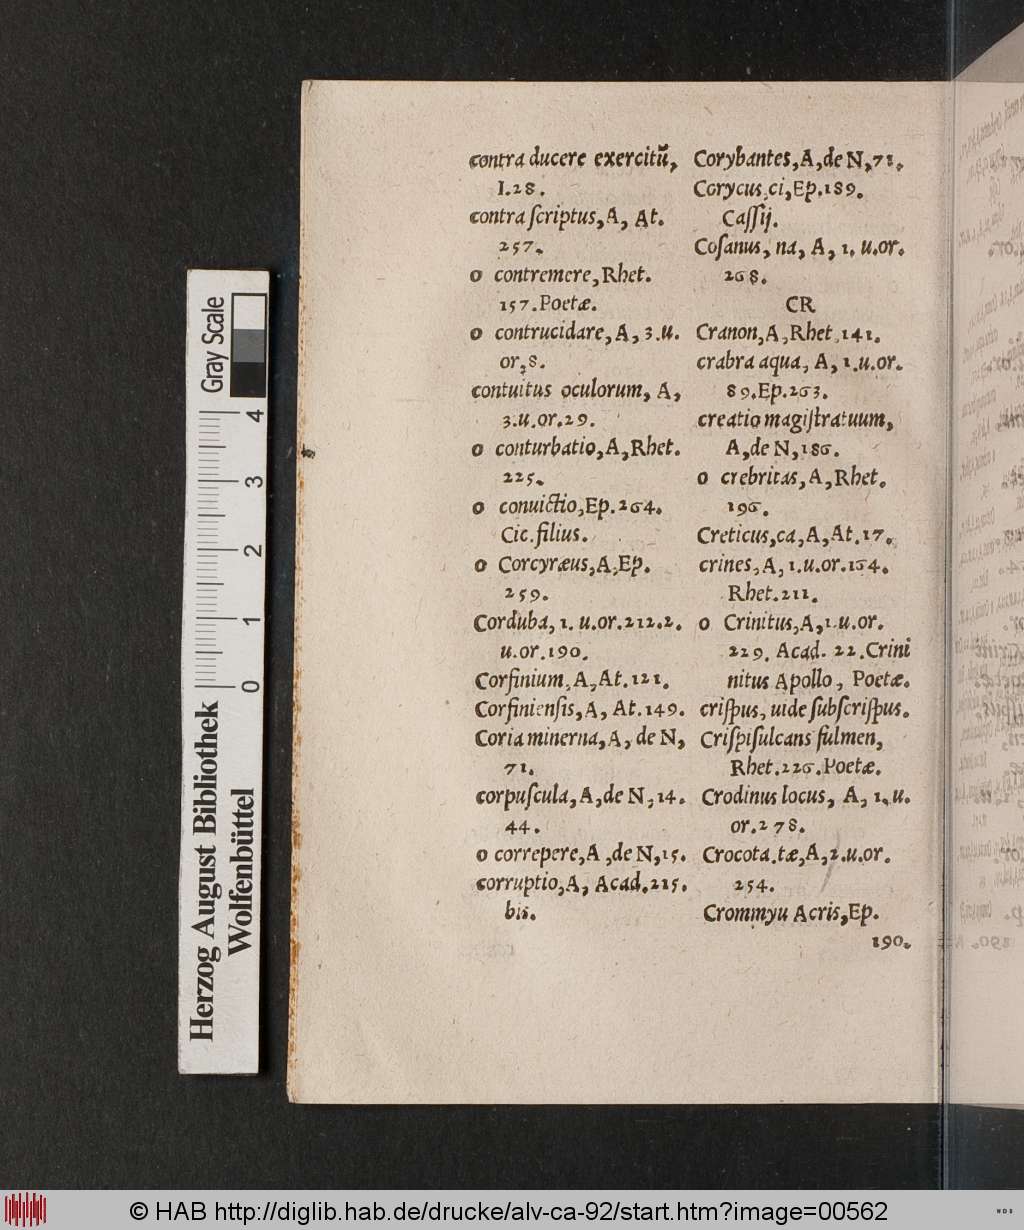 contra ducere exercitũ,
I.28.
contra ſcriptus, A, At.
257.
o contremere, Rhet.
157. Poetæ.
o contrucidare, A, 3.u.
or, 8.
contuitus oculorum, A,
3.u.or.29.
o conturbatio, A, Rhet.
225.
o conuictio, Ep.264.
Cic.filius.
o Corcyræus, A, Ep.
259.
Corduba, 1. u.or.212.2.
u.or.190.
Corfinium, A, At.121.
Corfinienſis, A, At.149.
Coria minerna, A, de N,
71.
corpuſcula, A, de N, 14.
44.
o correpere, A, de N, 15.
corruptio, A, Acad.215.
bis.
Corybantes, A, de N, 71.
Corycus, ci, Ep.189.
Caſſij.
Coſanus, na, A, 1. u.or.
268.
CR
Cranon, A, Rhet. 141.
crabra aqua, A, 1.u.or.
89.Ep.263.
creatio magiſtratuum,
A, de N, 186.
o crebritas, A, Rhet.
196.
Creticus, ca, A, At.17.
crines, A, 1.u.or.164.
Rhet.211.
o Crinitus, A, 1.u.or.
229. Acad. 22. Crini
nitus Apollo, Poetæ.
criſpus, uide ſubſcriſpus.
Criſpiſulcans fulmen,
Rhet.226. Poetæ.
Crodinus locus, A, 1.u.
or.278.
Crocota.tæ, A, 2.u.or.
254.
Crommyu Acris, Ep.
190.
Gray Scale
4
3
2
1
0
Herzog August Bibliothek
Wolfenbüttel
© HAB http://diglib.hab.de/drucke/alv-ca-92/start.htm?image=00562